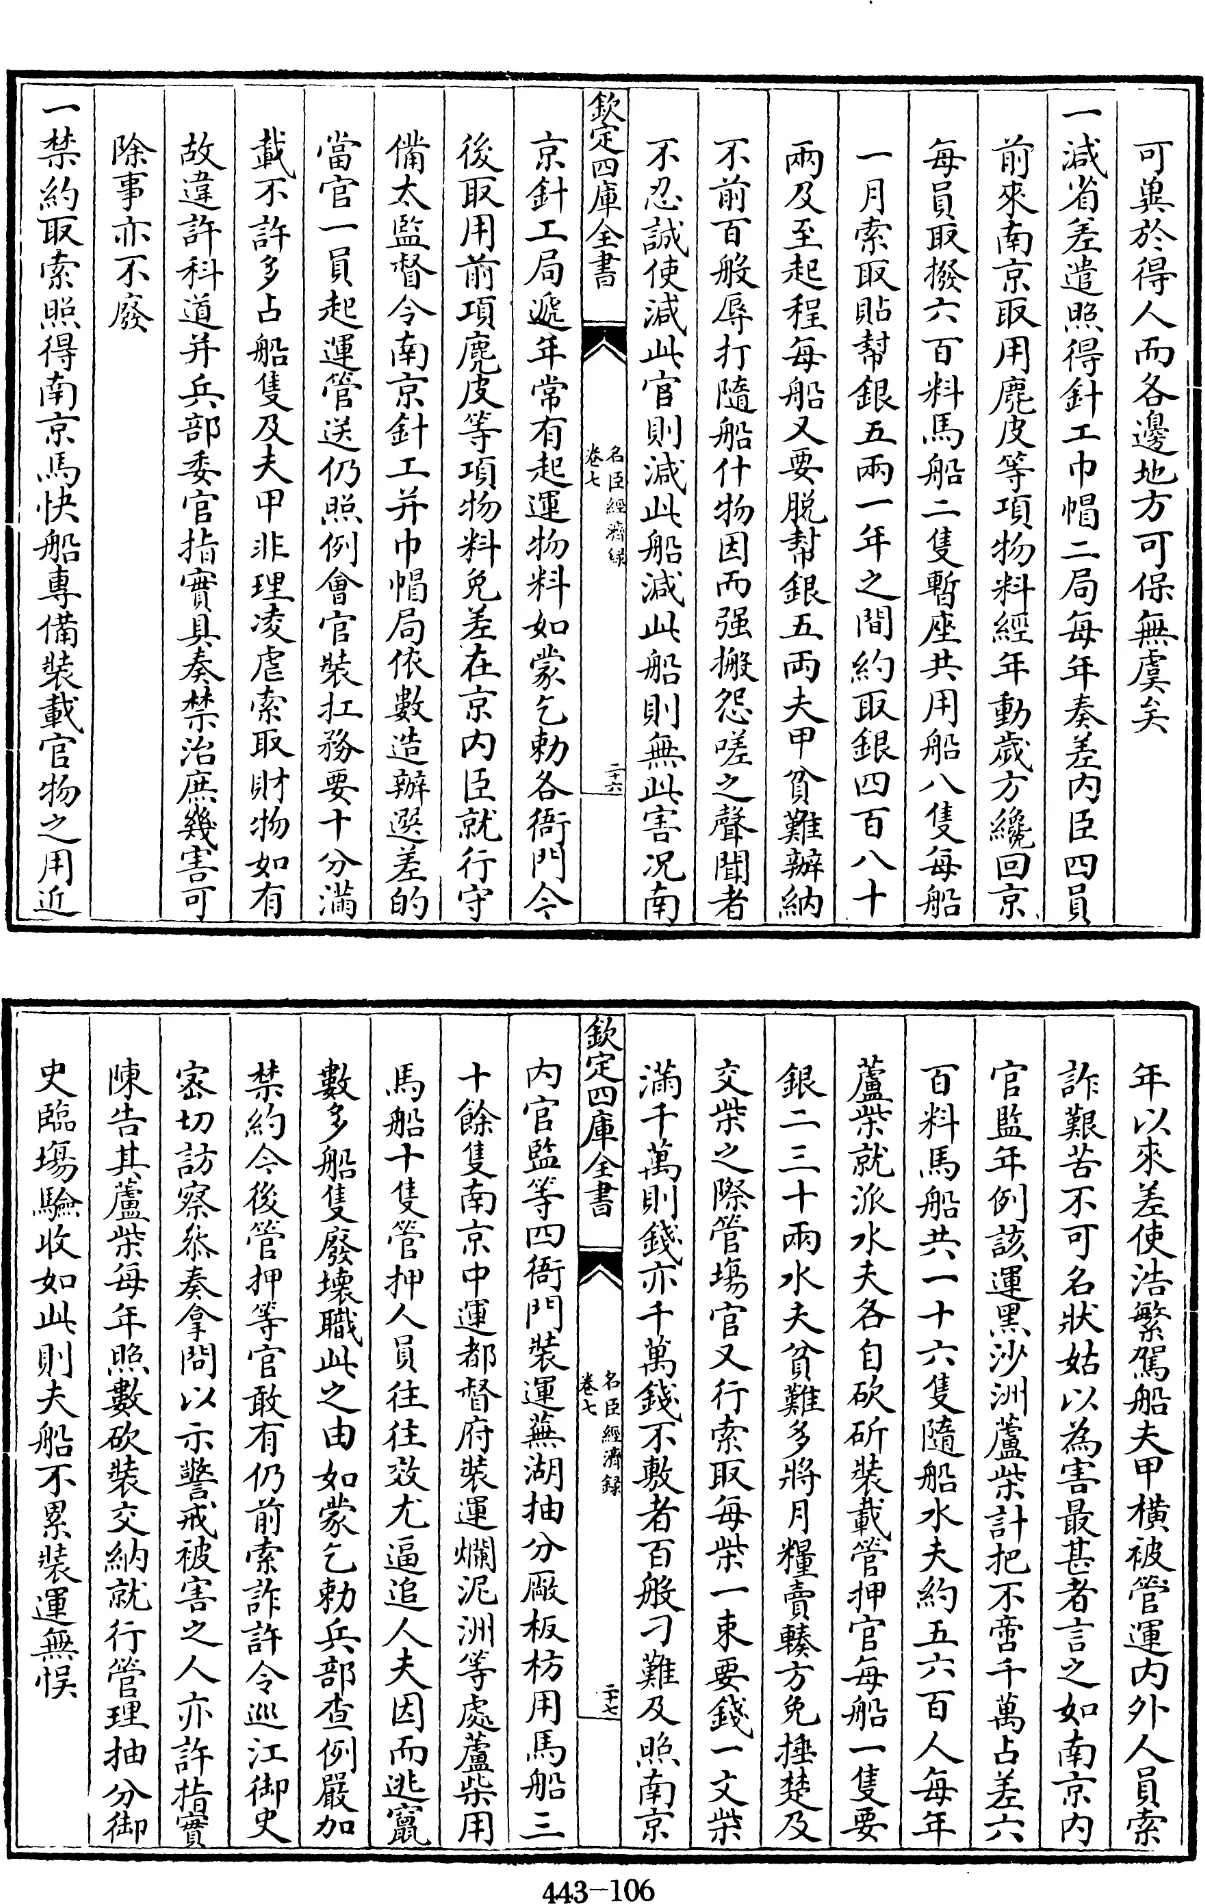 可冀於得人而各邊地方可保無虞矣
一減省差遣照得針工巾帽二局每年奏差内臣四員
前來南京取用麂皮等項物料經年動歲方纔回京
每員取撥六百料馬船二隻暫座共用船八隻每船
一月索取貼幫銀五兩一年之間約取銀四百八十
兩及至起程每船又要脱幇銀五兩夫甲貧難辦納
不前百般辱打隨船什物因而强搬怨嗟之聲聞者
不忍誠使減此官則減此船減此船則無此害况南
欽定四庫全書
名臣經濟録
卷七
二十六
京針工局遞年常有起運物料如蒙乞勅各衙門今
後取用前項麂皮等項物料免差在京内臣就行守
備太監督令南京針工并巾帽局依數造辦選差的
當官一員起運管送仍照例會官裝扛務要十分滿
載不許多占船隻及夫甲非理凌虐索取財物如有
故違許科道并兵部委官指實具奏禁治庶幾害可
除事亦不廢
一禁約取索照得南京馬快船專備裝載官物之用近
年以來差使浩繁駕船夫甲横被管運内外人員索
詐艱苦不可名狀姑以為害最甚者言之如南京内
官監年例該運黑沙洲蘆柴計把不啻千萬占差六
百料馬船共一十六隻隨船水夫約五六百人每年
蘆柴就派水夫各自砍斫裝載管押官每船一隻要
銀二三十兩水夫貧難多將月糧賣輳方免捶楚及
交柴之際管塲官又行索取每柴一束要錢一文柴
滿千萬則錢亦千萬錢不敷者百般刁難及照南京
欽定四庫全書
名臣經濟録
卷七
二十七
内官監等四衙門裝運蕪湖抽分厰板枋用馬船三
十餘隻南京中運都督府裝運爛泥洲等處蘆柴用
馬船十隻管押人員往往效尤逼追人夫因而逃竄
數多船隻廢壊職此之由如蒙乞勅兵部查例嚴加
禁約今後管押等官敢有仍前索詐許令巡江御史
宻切訪察叅奏拿問以示警戒被害之人亦許指實
陳告其蘆柴每年照數砍裝交納就行管理抽分御
史臨塲驗收如此則夫船不累裝運無悞
443-106